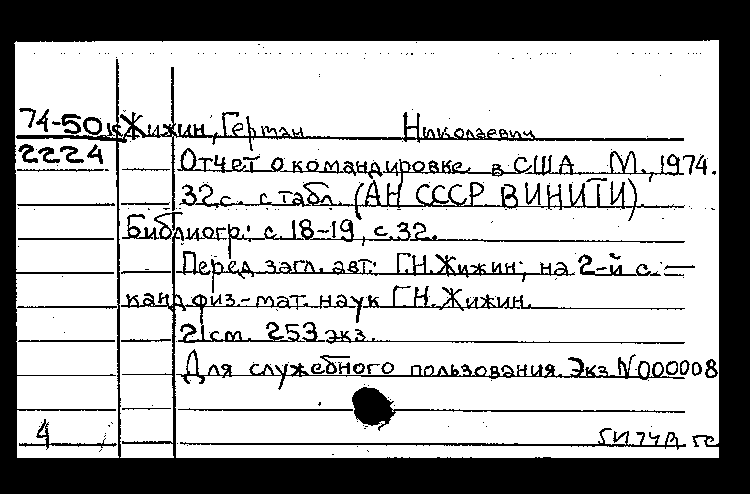 74-50к Жижин, Герман Николаевич
2224 Отчет о командировке в США М., 1974.
32с. с табл. (АН СССР ВИНИТИ)
Библиогр: с. 18-19, с. 32.
Перед загл. авт: Г.Н. Жижин; на 2-й с. —
канд физ-мат. наук Г.Н. Жижин.
21см. 253 экз.
Для служебного пользования. Экз. N 000008
4